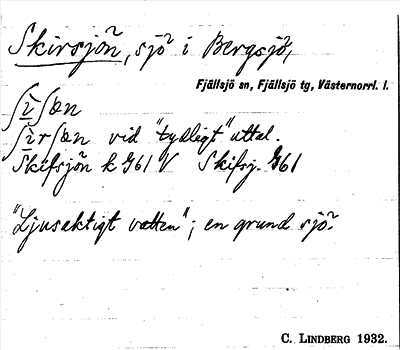 Skirsjön, sjö i Bergsjö,
Fjällsjö sn, Fjällsjö tg, Västernorrl. l.
ʃìʃøn
ʃìrʃøn vid "tydligt" uttal.
Skifsjön k G61 V Skifsj. G61
"Ljusaktigt vatten"; en grund sjö.
C. LINDBERG 1932.